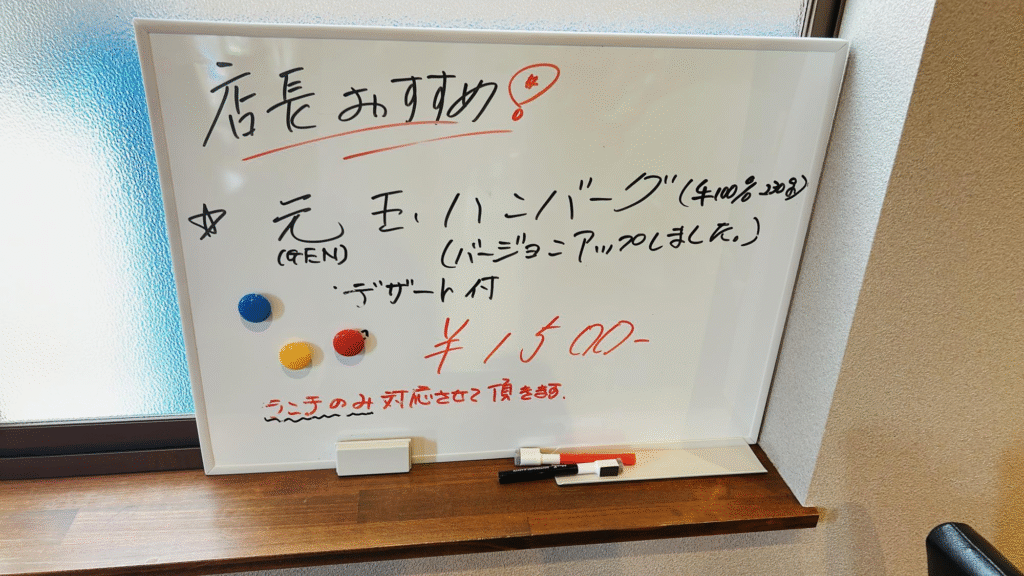 店長おすすめ!
☆ 元玉ハンバーグ(牛100% 230g)
(GEN) (バージョンアップしました。)
・デザート付
¥1500-
ランチのみ対応させて頂きます.